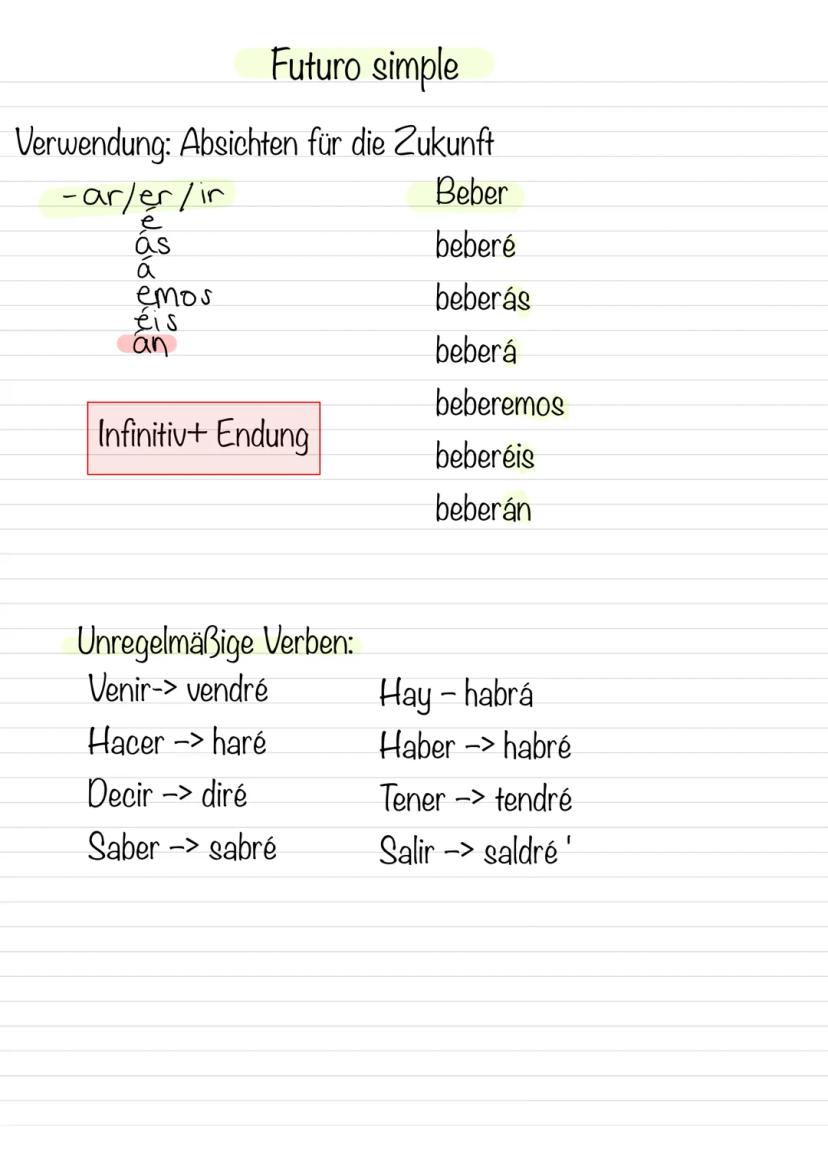 Futuro simple
Verwendung: Absichten für die Zukunft
-ar/er/ir
é
ás
á
emos
éis
án
Infinitiv+ Endung
Beber
beberé
beberás
beberá
beberemos
beberéis
beberán
Unregelmäßige Verben:
Venir-> vendré
Hacer -> haré
Decir -> diré
Saber -> sabré
Hay – habrá
Haber -> habré
Tener -> tendré
Salir -> saldré '